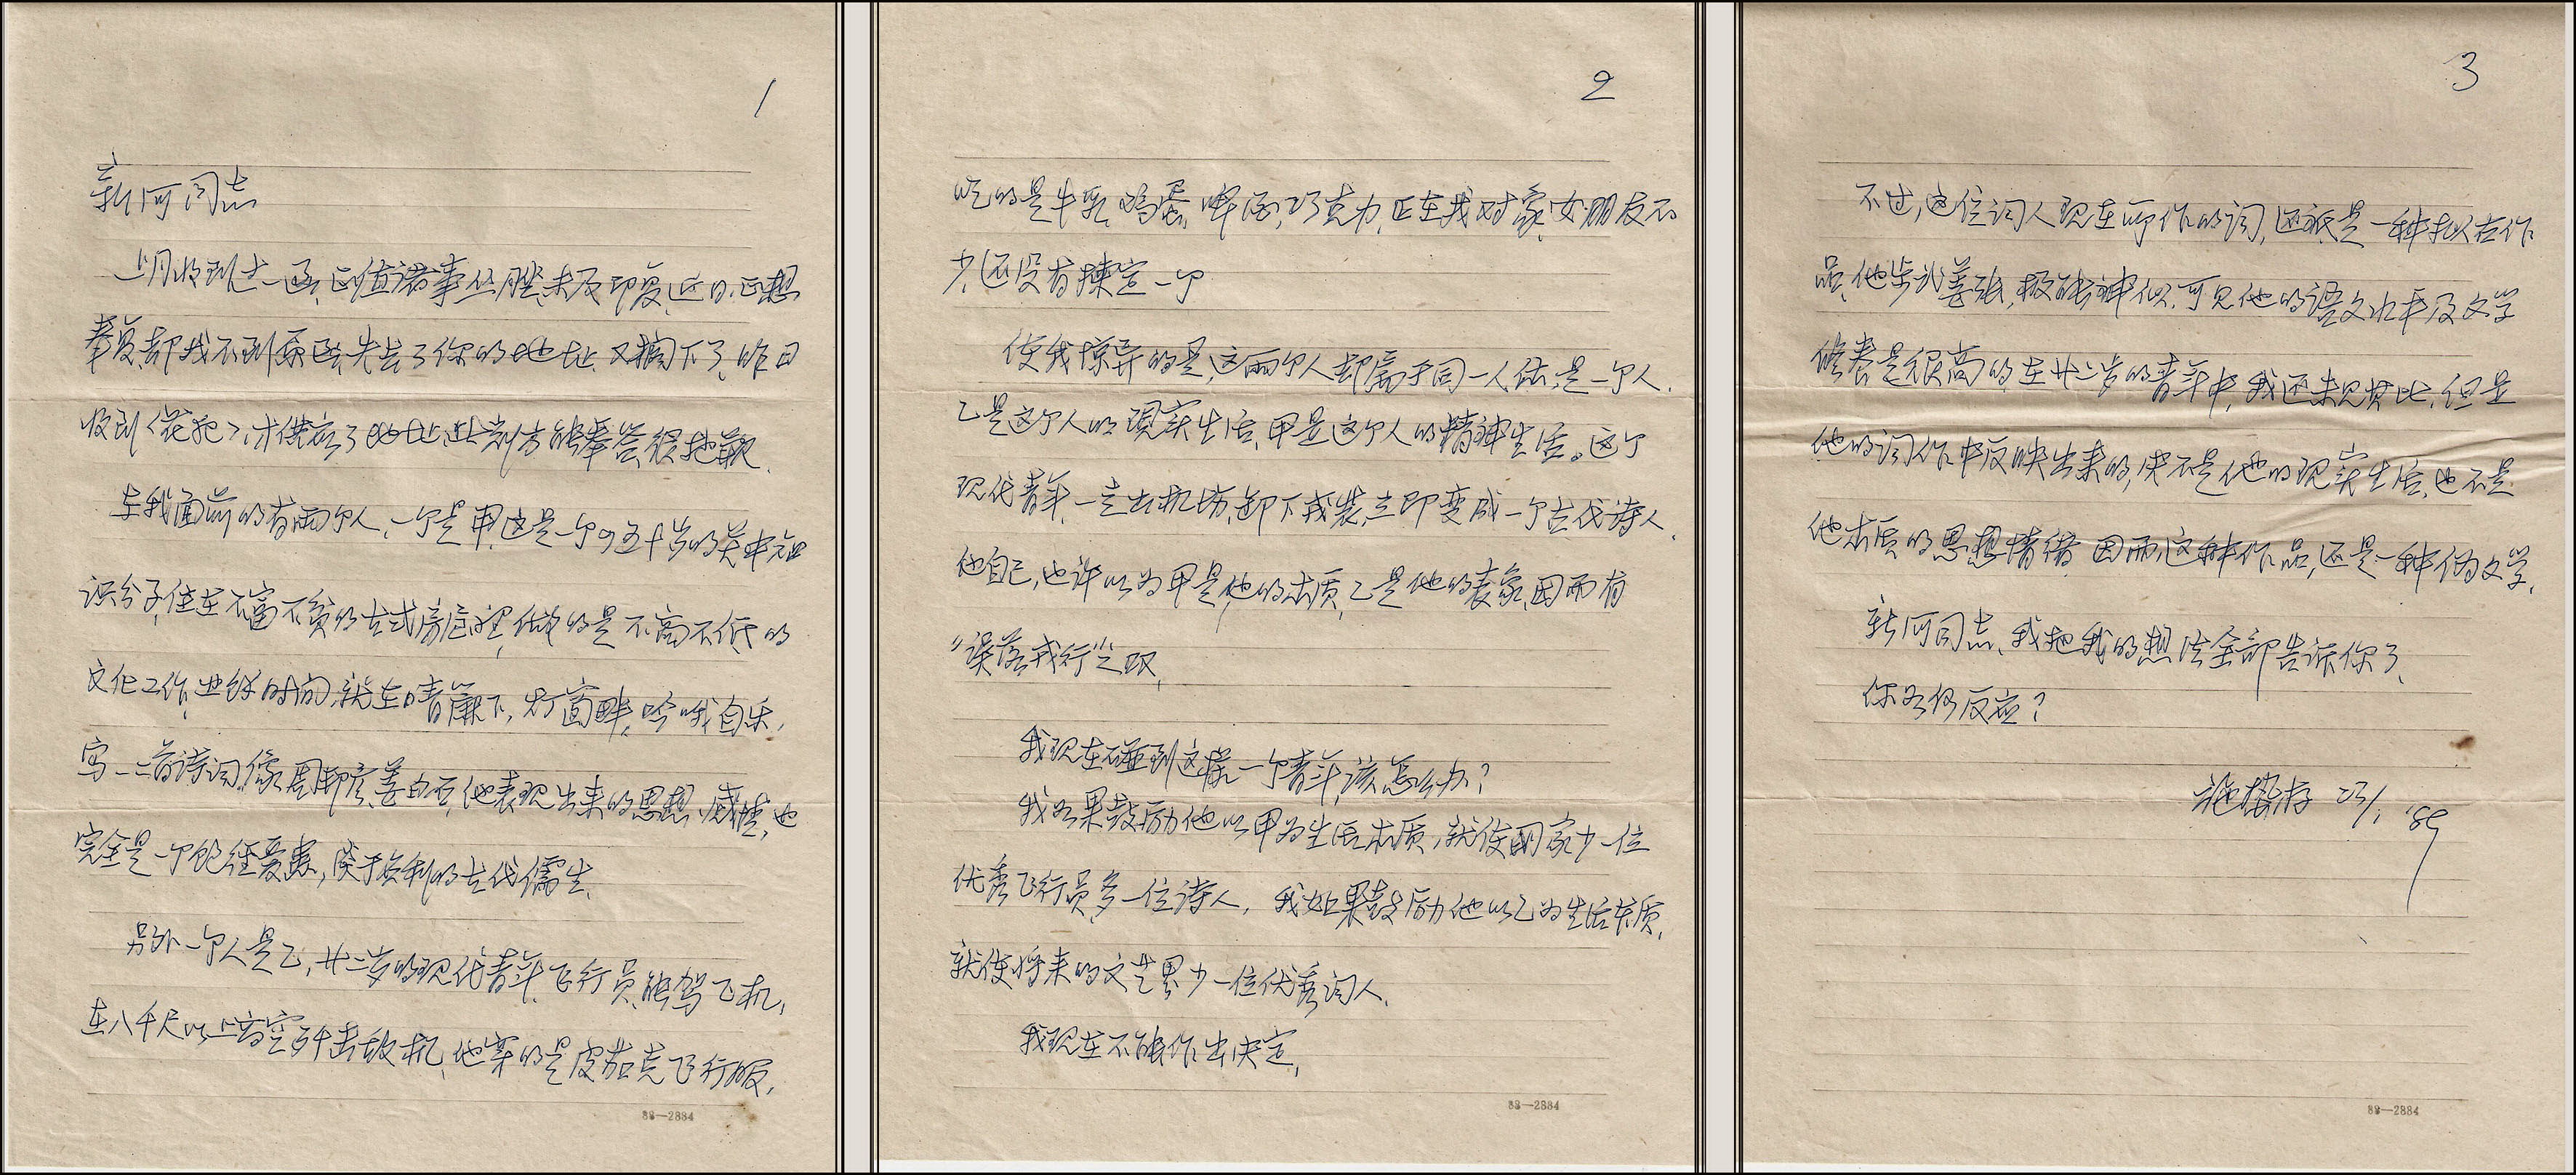 1
新河同志
上月收到去一函,正值诸事丛脞,未及即复,近日正想
奉复,却找不到原函,失去了你的地址,又搁下了,昨日
收到《花犯》,才供应了地址,此刻方能奉答,很抱歉.
在我面前的有两个人,一个是甲,这是一个四五十岁的英中知
识分子,住在不富不贫的古式房屋里,做的是不高不低的
文化工作,业馀时间,就在晴簾下,灯窗畔,吟哦自乐,
写一二首诗词,像周邦彦、姜白石,他表现出来的思想、感情,也
完全是一个饱经忧患,淡于名利的古代儒生.
另外一个人是乙,廿二岁的现代青年,飞行员,能驾飞机,
在八千尺以上高空歼击敌机,他穿的是皮茄克飞行服,
88—2884
2
吃的是牛乳,鸡蛋,啤酒,巧克力,正在找对象,女朋友不
少,还没有拣定一个
使我惊异的是,这两个人却属于同一人体,是一个人.
乙是这个人的现实生活,甲是这个人的精神生活。这个
现代青年,一走出机场,卸下戎装,立即变成一个古代诗人.
他自己,也许以为甲是他的本质,乙是他的表象,因而有
“误落戎行”之叹,
我现在碰到这样一个青年,该怎么办?
我如果鼓励他以甲为生活本质,就使国家少一位
优秀飞行员,多一位诗人, 我如果鼓励他以乙为生活本质,
就使将来的文艺界少一位优秀词人.
我现在不能作出决定,
88—2884
3
不过,这位词人现在所作的词,还祇是一种拟古作
品,他步武姜张,极能神似,可见他的语文水平及文学
修养是很高的,在廿二岁的青年中,我还未见其比,但是
他的词作中反映出来的,决不是他的现实生活,也不是
他本质的思想情绪,因而,这种作品,还是一种伪文学,
新河同志,我把我的想法全部告诉你了,
你如何反应?
施蛰存 23/1 '89
88—2884